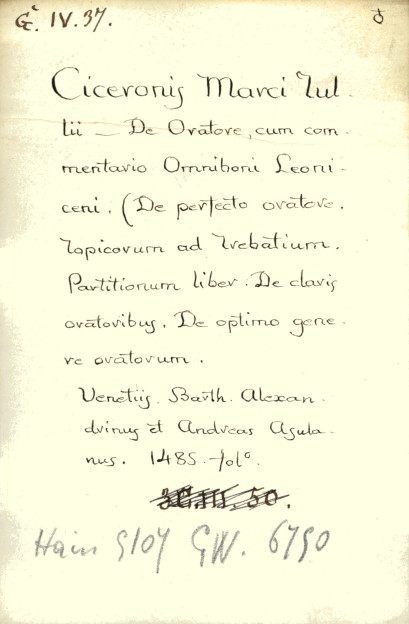 Gč. IV. 37.
Ciceronis Marci Tul-
lii — De Oratore, cum com-
mentario Omniboni Leoni-
ceni. (De perfecto oratore.
Topicorum ad Trebatium.
Partitionum liber. De claris
oratoribus. De optimo gene-
re oratorum.
Venetiis. Barth. Alexan-
drinus et Andreas Asula-
nus. 1485. fol°.
50.
Hain 5107 GW. 6750